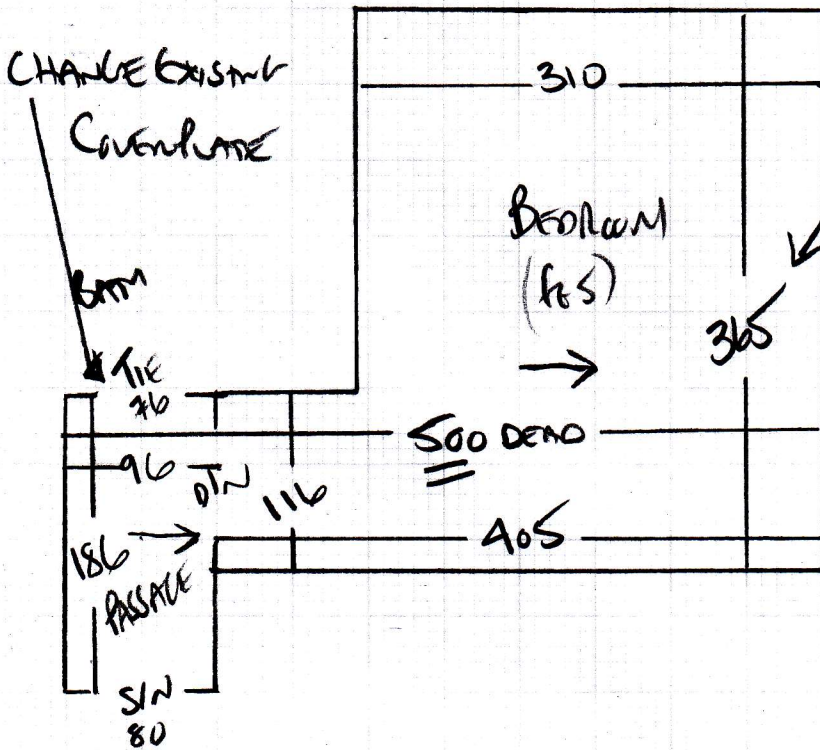 310
CHANGE EXISTING
COVERPLATE
BEDROOM
365
BATH
TIE
76
500 DEAD
96
DTN
116
405
186
PASSAGE
S/N
80